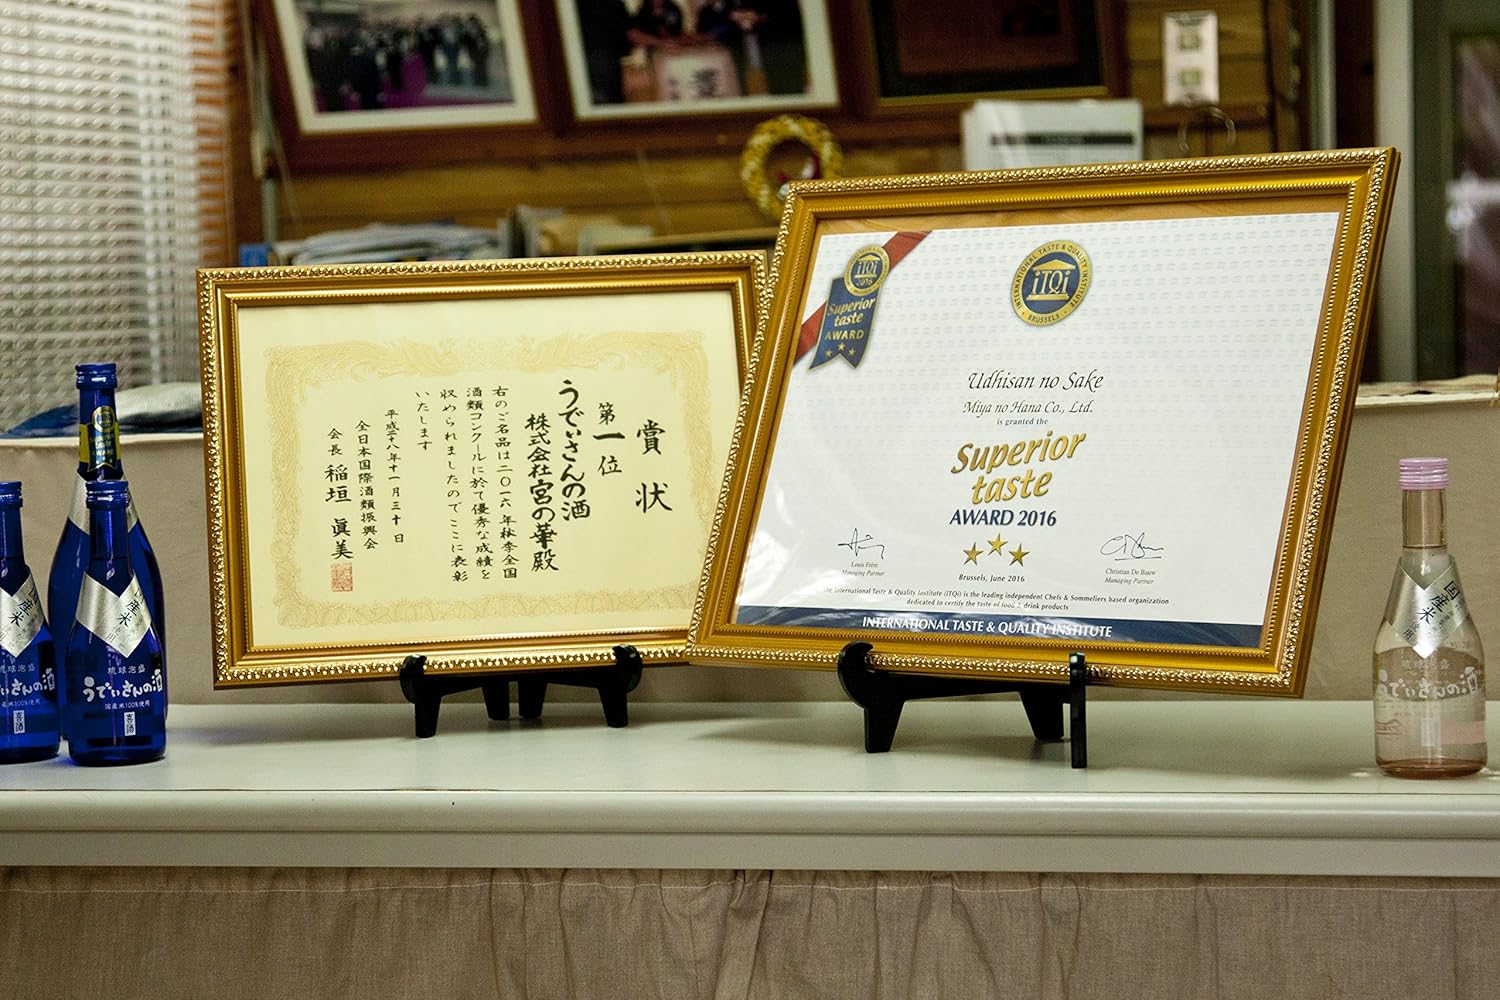 賞状
第一位
うでぃさんの酒
株式会社宮の華殿
右のご名品は二〇一六年秋季全国
酒類コンクールに於て優秀な成績を
収められましたのでここに表彰
いたします
平成二十八年十一月三十日
全日本国際酒類振興会
会長 稲垣眞美
iTQi
2016
Superior
taste
AWARD
INTERNATIONAL TASTE & QUALITY INSTITUTE
iTQi
BRUSSELS
Udhisan no Sake
Miya no Hana Co., Ltd.
is granted the
Superior
taste
AWARD 2016
Louis Frère
Managing Partner
Brussels, June 2016
Christian De Bauw
Managing Partner
The International Taste & Quality Institute (iTQi) is the leading independent Chefs & Sommeliers based organization
dedicated to certify the taste of food & drink products
INTERNATIONAL TASTE & QUALITY INSTITUTE
国産米
使用
琉球泡盛
でぃさんの酒
国産米100%使用
国産米
使用
琉球泡盛
うでぃさんの酒
国産米100%使用
国産米
使用
琉球泡盛
うでぃさんの酒